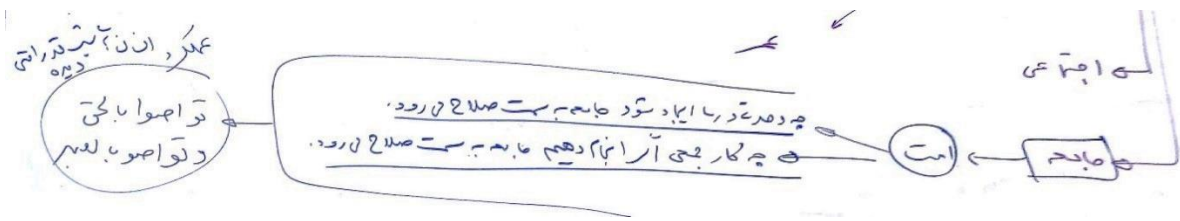 اجتماعی
جامعه
امت
چه وحدتی در ما ایجاد شود جامعه به سمت صلاح می‌رود.
چه کار جمعی اگر انجام دهیم جامعه به سمت صلاح می‌رود.
عملکرد
دیده
تواصوا بالحق
و تواصوا بالصبر